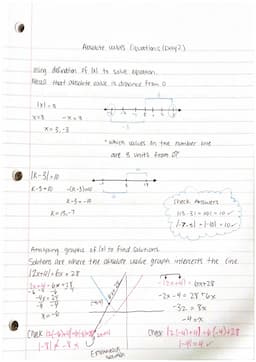 Absolute Values Equations (Day 2)
Using definition of |x| to solve equation.
Recall that absolute value is distance from 0
|x| = 3
x=3 -x=3
x=3,-3
-3
"which values on the number line
are 3 units from 0?"
|k-3|=10
k-3=10 -(k-3)=10
k-3=-10
k=13,-7
Check Answers
|13-3| = |10| = 10 ✓
|-7-3| = |-10| = 10 ✓
Analyzing graphs of |x| to find solutions.
Solutions are where the absolute value graph intersects the line
|2x+4| = 6x+28
2x+4=6x+28
-4x=24
x=-6
-(2x+4) = 6x+28
-2x-4=28+6x
-32=8x
-4=x
Check
|-8| ≠ -8 x
Extraneous
solution
Check |2(-4)+4|=6(-4)+28
|-4|=4 ✓